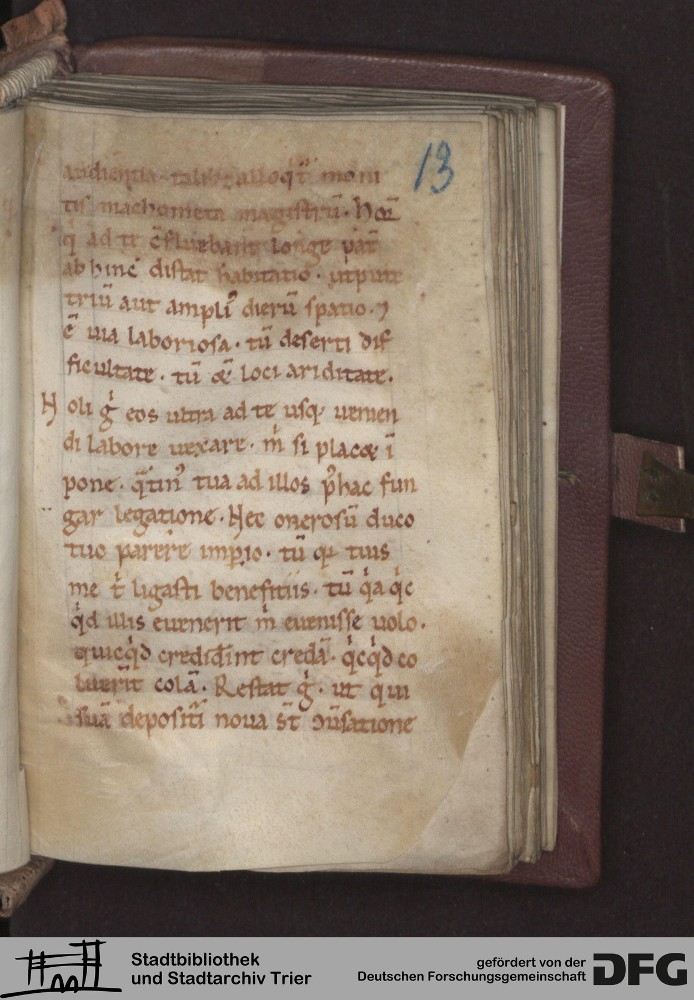 13
audientia talibus alloq̇t᷒ moni
tis machometa magistrū. Hoꝝ
q̇ ad te c̄fluebant longe pat̄
abhinc distat habitatio. utpute
triū aut ampli᷒ dierū spatio. ⁊
ē uia laboriosa. tū deserti dif
ficultate. tū &̄ loci ariditate.
Noli ġ eos ultra ad te usq; uenien
di labore uexare. m̍ si plac& ī
pone. q̄tin᷒ tua ad illos p᷒hac fun
gar legatione. Nec onerosū duco
tuo parere imp̄io. tū qa tuis
me t̍ ligasti benefitiis. tū q̍a q̍c
q̍d illis euenerit m̍ euenisse uolo.
quicq̍d crediderint credā. q̍cq̍d co
luerīt colā. Restat ġ. ut qui
suā depositi noua s̄t ɔuersatione
Stadtbibliothek
und Stadtarchiv Trier
gefördert von der
Deutschen Forschungsgemeinschaft
DFG